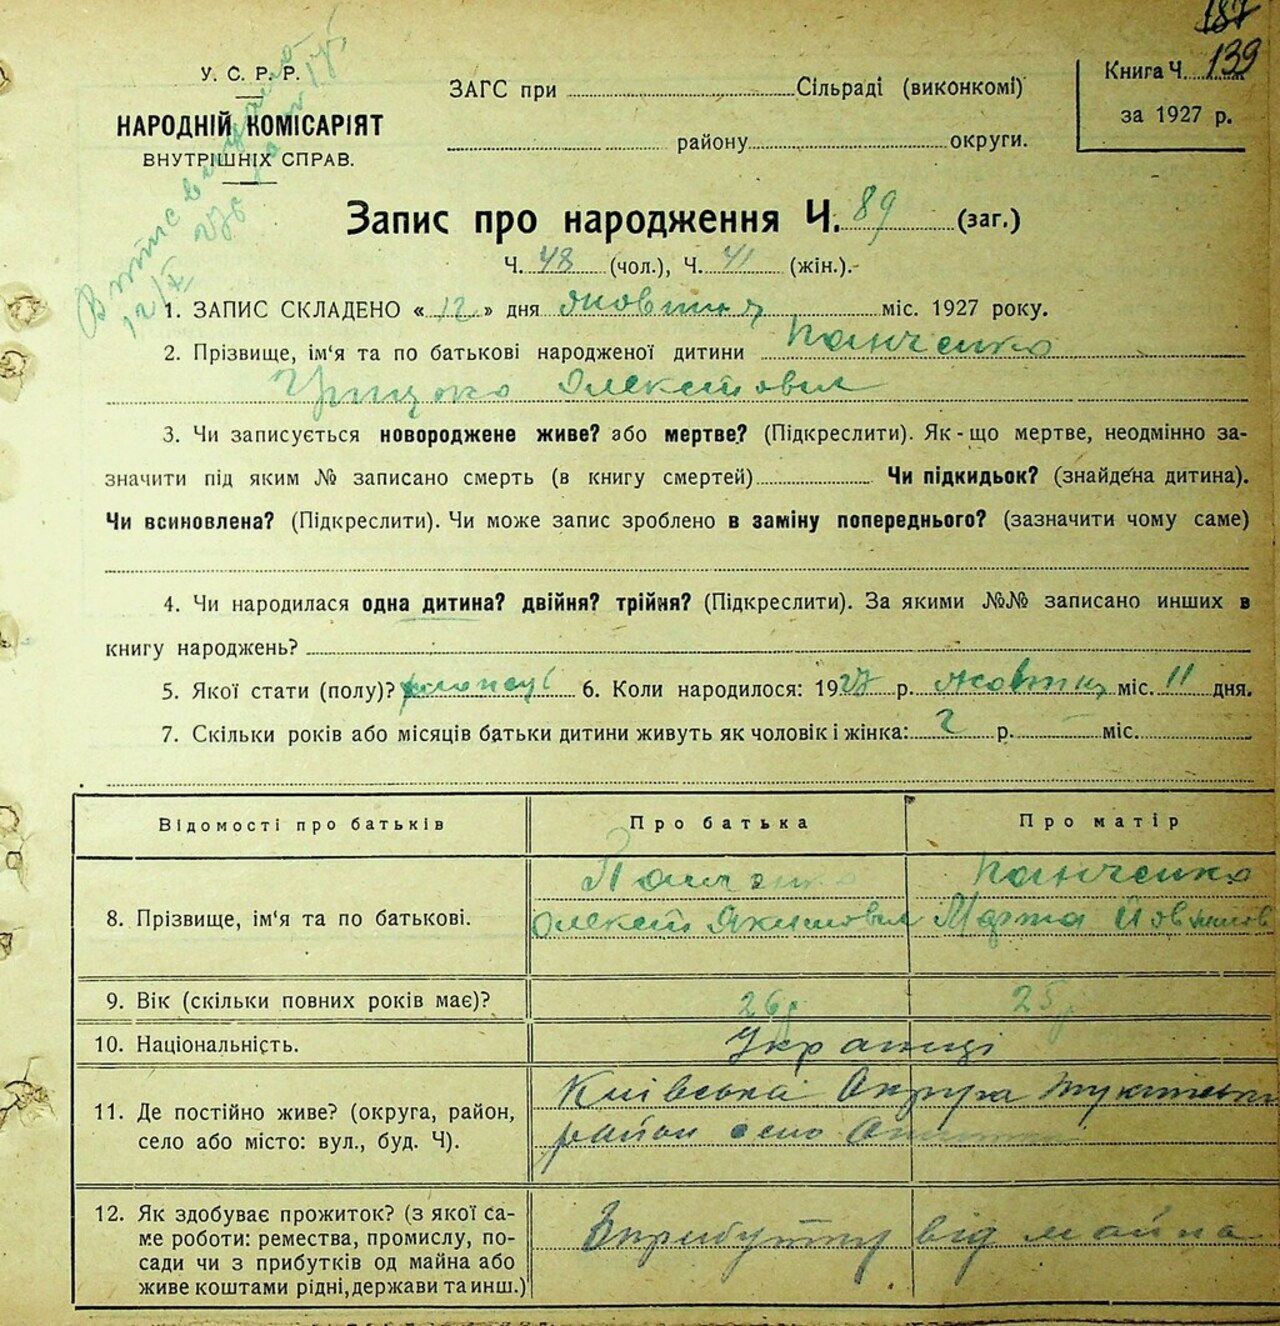 187
139
У. С. Р. Р.
НАРОДНІЙ КОМІСАРІЯТ
ВНУТРІШНІХ СПРАВ.
ЗАГС при Сільраді (виконкомі)
району округи.
Книга Ч.
за 1927 р.
Запис про народження Ч. 89 (заг.)
Ч. 48 (чол.), Ч. 41 (жін.).
1. ЗАПИС СКЛАДЕНО «12» дня жовтня міс. 1927 року.
2. Прізвище, ім‘я та по батькові народженої дитини Панченко
Грицько Олексійович
3. Чи записується новороджене живе? або мертве? (Підкреслити). Як-що мертве, неодмінно за-
значити під яким № записано смерть (в книгу смертей) Чи підкидьок? (знайдена дитина).
Чи всиновлена? (Підкреслити). Чи може запис зроблено в заміну попереднього? (зазначити чому саме)
4. Чи народилася одна дитина? двійня? трійня? (Підкреслити). За якими №№ записано инших в
книгу народжень?
5. Якої стати (полу)? 6. Коли народилося: 1927 р. жовтня міс. 11 дня.
7. Скільки років або місяців батьки дитини живуть як чоловік і жінка: 2 р. - міс.
Відомості про батьків
Про батька
Про матір
8. Прізвище, ім‘я та по батькові.
Панченко
Олексій Якимович
Панченко
Марта
9. Вік (скільки повних років має)?
26р
25р
10. Національність.
Українці
11. Де постійно живе? (округа, район,
село або місто: вул., буд. Ч).
Київська Округа
район село
12. Як здобуває прожиток? (з якої са-
ме роботи: ремества, промислу, по-
сади чи з прибутків од майна або
живе коштами рідні, держави та инш.)
З прибутку від майна